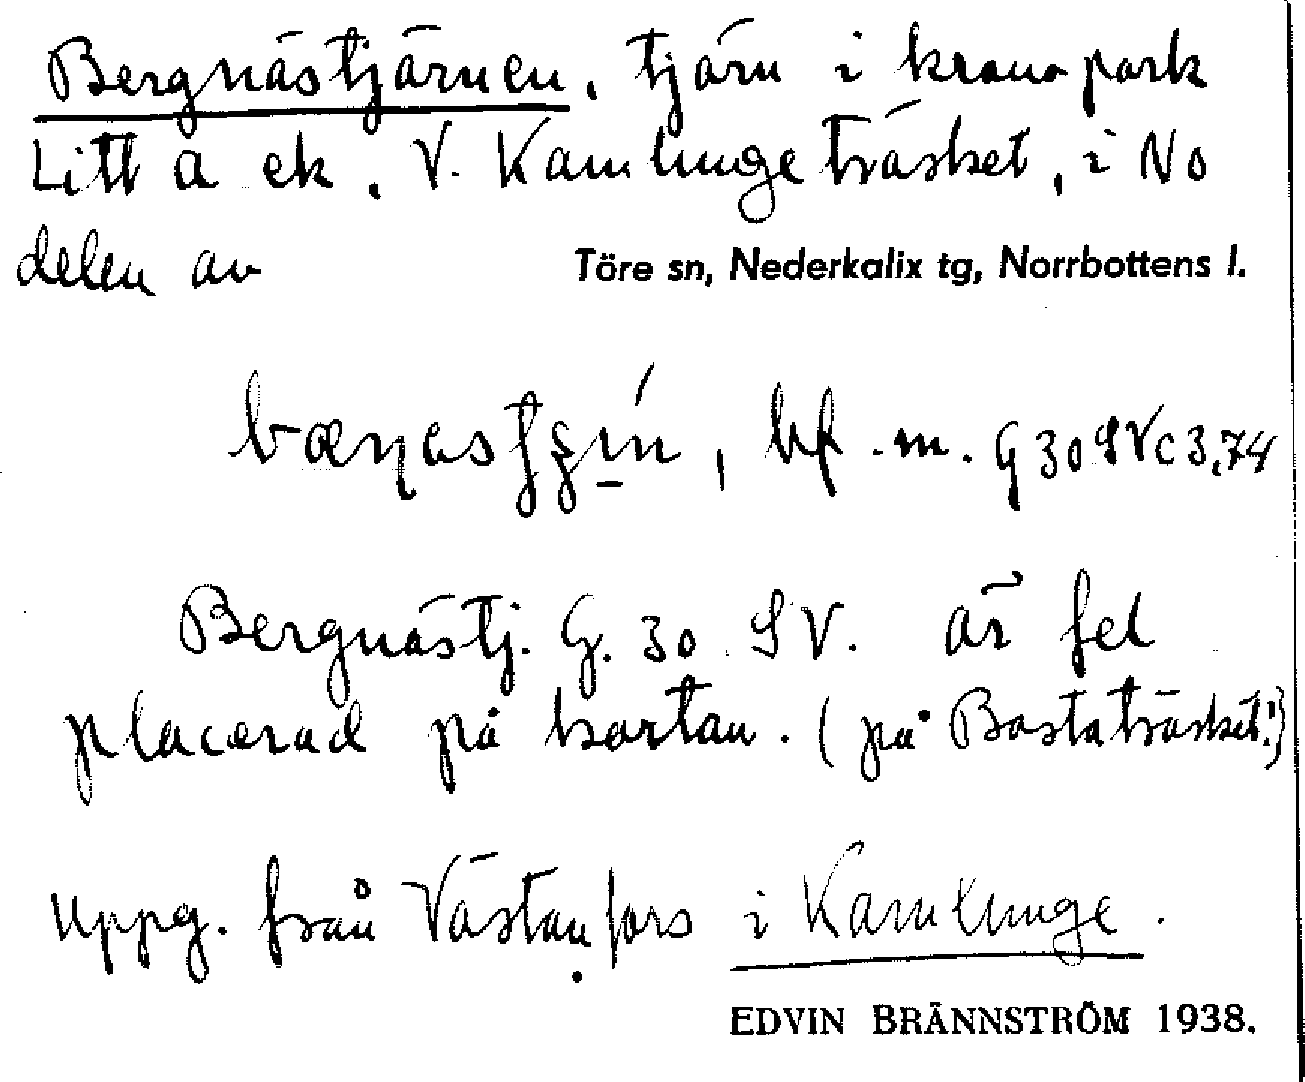 Bergnästjärnen, tjärn i kronopark
Litt a ek, V. Kamlungeträsket, i No
delen av Töre sn, Nederkalix tg, Norrbottens l.
bf. m. G 30 SV c 3,74
Bergnästj. G. 30 SV. är fel
placerad på kartan. (på Bastaträsket!)
uppg. från Västanfors i Kamlunge.
EDVIN BRÄNNSTRÖM 1938.